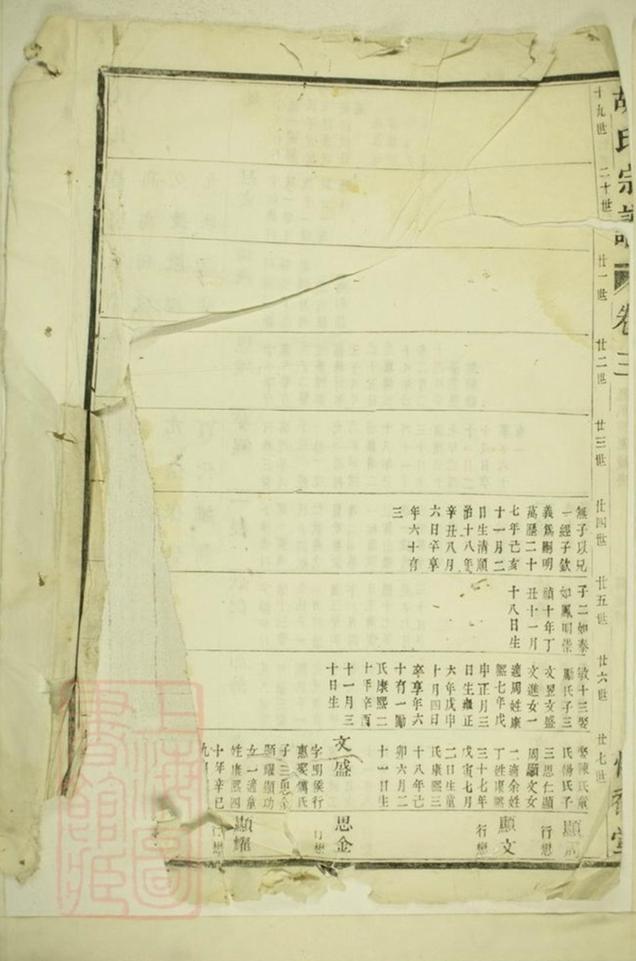 胡氏宗譜
卷三
十九世
二十世
廿一世
廿二世
廿三世
廿四世
廿五世
廿六世
廿七世
無子以兄
一經子欽
義爲嗣明
萬歷二十
七年己亥
十一月二
日生清順
治十八年
辛丑八月
六日卒享
年六十有
三
子二如泰
如鳳明崇
禎十年丁
丑十一月
十八日生
敏十三娶
氏子三
文昱文盛
文進女一
適周姓康
熙七年戊
申正月三
日生雍正
六年戊申
十月四日
卒享年六
十有一
氏康熙二
十年辛酉
十一月三
十日生
娶陳氏童
氏楊氏子
三思仁顯
周顯文女
一適余姓
丁姓康熙
三十七年
戊寅七月
二日生童
氏康熙三
十八年己
卯六月二
十一日生
文盛
字明行
惠娶氏
子三思金
顯耀顯功
女一適童
姓康熙四
十年辛巳
九
顯
行
顯文
行
思金
行
顯耀
行
上海圖書館